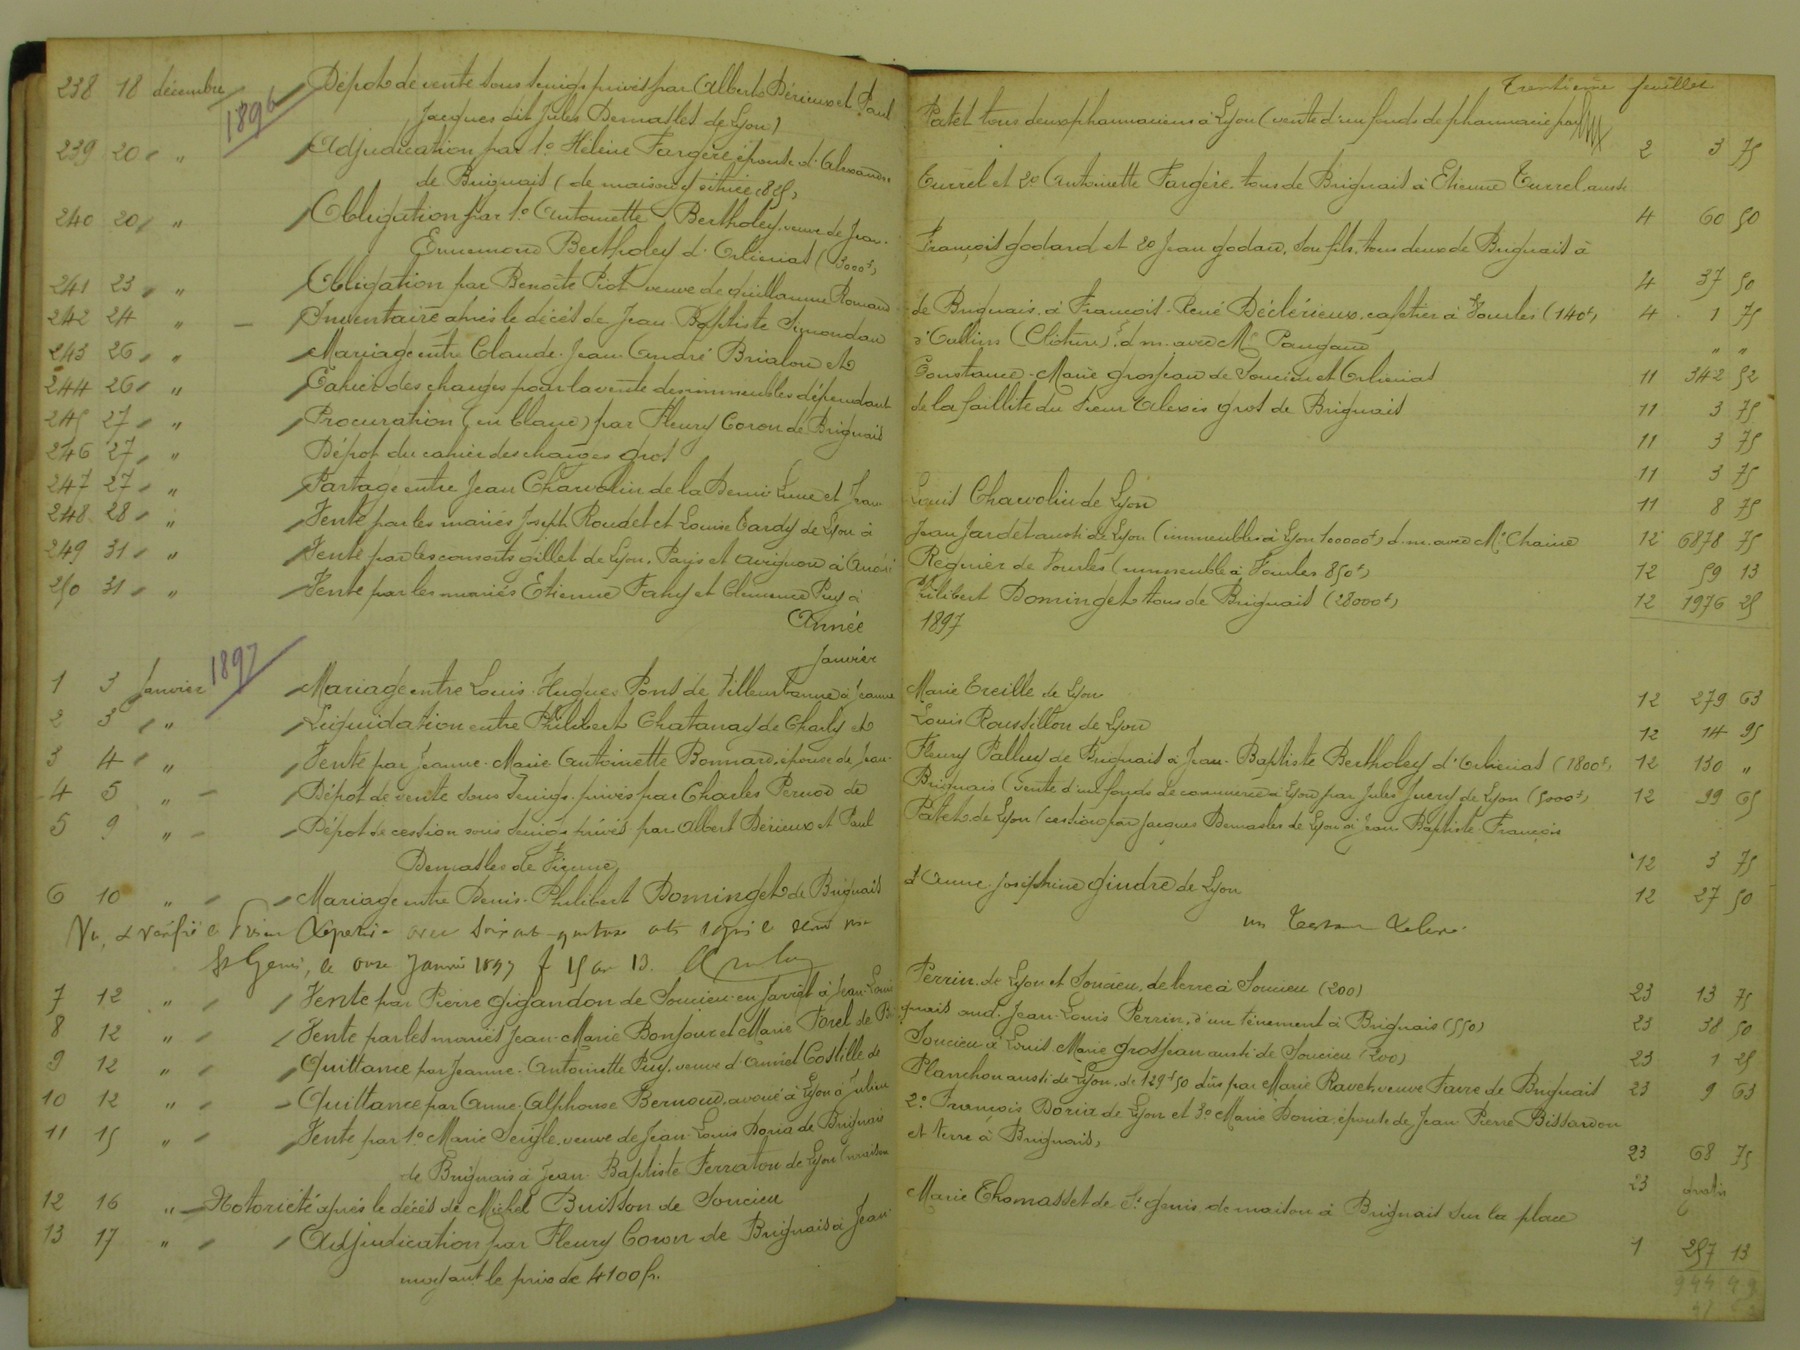 Trentième feuillet
238 18 décembre 1896 Dépot de vente sous seings privés par Albert Dérieux et Paul Patet tous deux pharmaciens à Lyon (vente d'un fonds de pharmacie par
Jacques dit Jules Demasles de Lyon) 2 3 75
239 20 " Adjudication par 1° Hélène Fargère épouse d'Alexandre Turrel et 2° Antoinette Fargère, tous de Brignais à Etienne Turrel aussi
de Brignais (de maison et 4 60 50
240 20 " Obligation par 1° Antoinette Bertholey veuve de Jean-François Godard et 2° Jean Godard, son fils, tous deux de Brignais à
Ennemond Bertholey d'Orliénas (3000f) 4 37 50
241 23 " Obligation par Benoîte Piot veuve de Guillaume Romand de Brignais à François-René Déclérieux, cafetier à Vourles (140f) 4 1 75
242 24 " Inventaire après le décès de Jean-Baptiste Simondan d'Oullins (Clôture) d.m. avec Me " "
243 26 " Mariage entre Claude-Jean André Brialon et Constance-Marie Grosjean de Soucieu et Orliénas 11 342 52
244 26 " Cahier des charges pour la vente des immeubles dépendant de la faillite du sieur Alexis Grot de Brignais 11 3 75
245 27 " Procuration (en blanc) par Fleury Coron de Brignais 11 3 75
246 27 " Dépot du cahier des charges Grot 11 3 75
247 27 " Partage entre Jean Charvolin de la Demi Lune et Jean Louis Charvolin de Lyon 11 8 75
248 28 " Vente par les mariés Joseph Roudet et Louise Tardy de Lyon à Jean Jardet aussi de Lyon (immeubles à Lyon 100000f) d.m. avec Me Chaine 12 6878 75
249 31 " Vente par les consorts Gillet de Lyon, Paris et Avignon à André Régnier de Vourles (immeuble à Vourles 850f) 12 59 13
250 31 " Vente par les mariés Etienne Fahy et Clémence Puy à Philibert Dominget tous de Brignais (28000f) 12 1976 25
Année 1897
Janvier
1 3 Janvier 1897 Mariage entre Louis-Hugues Pont de Villeurbanne à Jeanne Marie Treille de Lyon 12 279 63
2 3 " Liquidation entre Philibert Chatanay de Charly et Louis Roussillon de Lyon 12 14 95
3 4 " Vente par Jeanne-Marie Antoinette Bonnard, épouse de Jean-Fleury Palluy de Brignais à Jean-Baptiste Bertholey d'Orliénas (1800f) 12 130 "
4 5 " Dépot de vente sous seings privés par Charles Pernod de Brignais (vente d'un fonds de commerce à Lyon par Jules Juery de Lyon (5000f) 12 99 65
5 9 " Dépot de cession sous seings privés par Albert Dérieux et Paul Patet de Lyon (cession par Jacques Demasles de Lyon à Jean Baptiste François
Demasles de Vienne) 12 3 75
6 10 " Mariage entre Denis-Philibert Dominget de Brignais et Anne-Joséphine Gindre de Lyon 12 27 50
Vu, et vérifié le
St Genis, le onze Janvier 1897 f 15 Cse 13.
7 12 " Vente par Pierre Gigandon de Soucieu-en-Jarrest à Jean-Louis Perrin, de Lyon et Soucieu, de terre à Soucieu (200) 23 13 75
8 12 " Vente par les mariés Jean-Marie Bonjour et Marie Torel de Brignais aud. Jean-Louis Perrin, d'un tènement à Brignais (550) 23 38 50
9 12 " Quittance par Jeanne-Antoinette Puy, veuve d'Annet Costille de Soucieu à Louis-Marie Grosjean aussi de Soucieu (200) 23 1 25
10 12 " Quittance par Anne-Alphonse Bernoud, avoué à Lyon à Julien Planchon aussi de Lyon, de 129f50 dûs par Marie Ravet veuve Favre de Brignais 23 9 63
11 15 " Vente par 1° Marie Seigle, veuve de Jean-Louis Doria de Brignais 2° François Doria de Lyon et 3° Marie Doria, épouse de Jean Pierre Bissardon
de Brignais à Jean-Baptiste Ferraton de Lyon (maison et terre à Brignais) 23 68 75
12 16 " Notoriété après le décès de Michel Buisson de Soucieu 23 gratis
13 17 " Adjudication par Fleury Coron de Brignais à Jean-Marie Thomasset de St Genis de maison à Brignais sur la place
moyant le prix de 4100 fr. 1 257 13
944 49